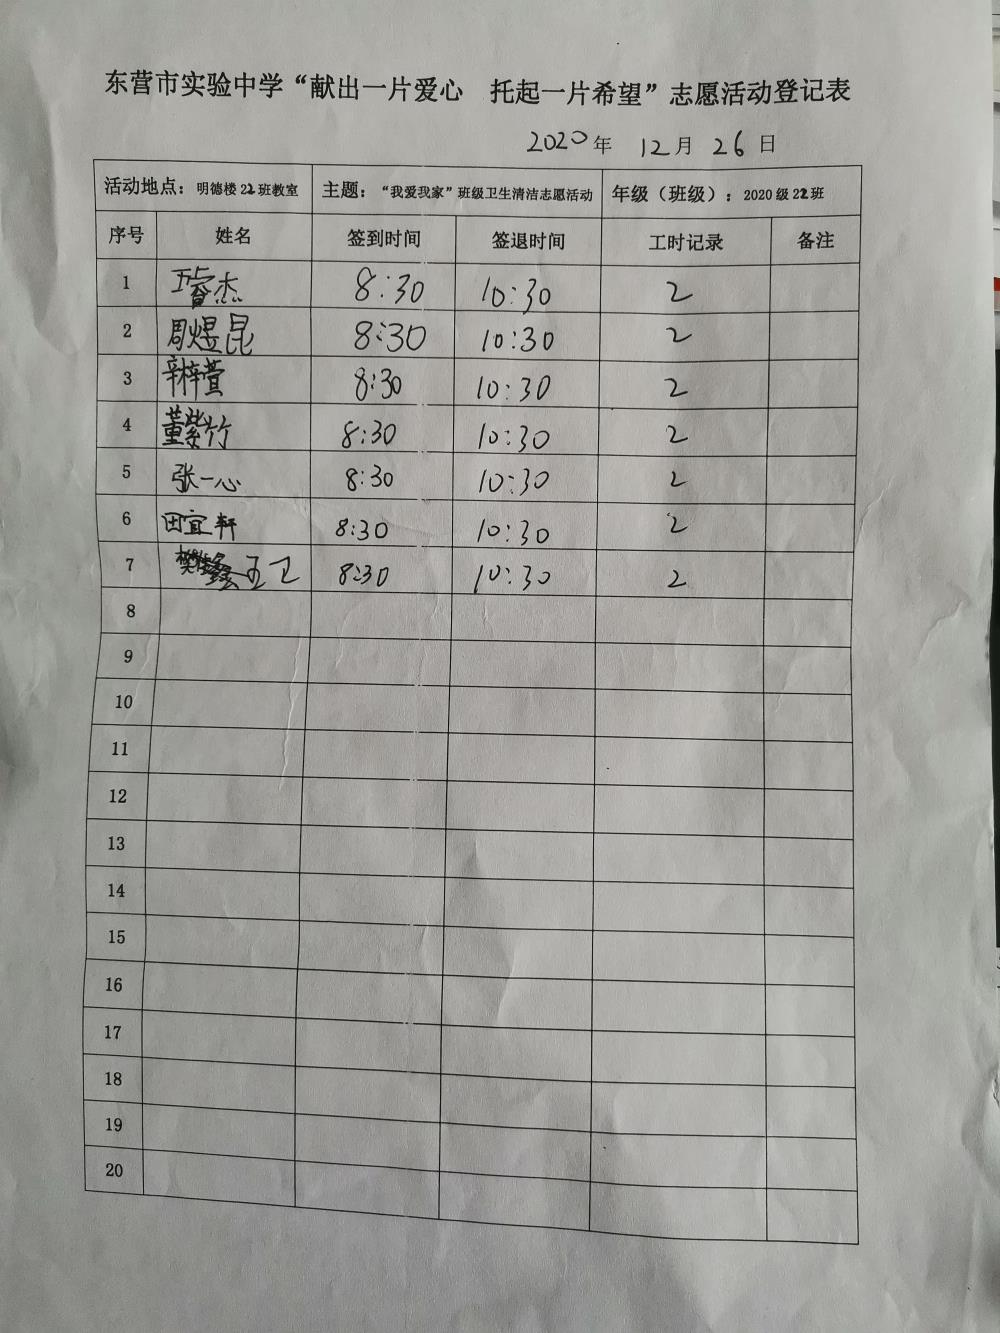 东营市实验中学“献出一片爱心 托起一片希望”志愿活动登记表
2020年 12月 26日
活动地点：明德楼22班教室 主题：“我爱我家”班级卫生清洁志愿活动 年级（班级）：2020级22班
序号 姓名 签到时间 签退时间 工时记录 备注
1 杰 8:30 10:30 2
2 周煜昆 8:30 10:30 2
3 辛梓萱 8:30 10:30 2
4 董紫竹 8:30 10:30 2
5 张一心 8:30 10:30 2
6 田宜轩 8:30 10:30 2
7 王卫 8:30 10:30 2
8
9
10
11
12
13
14
15
16
17
18
19
20